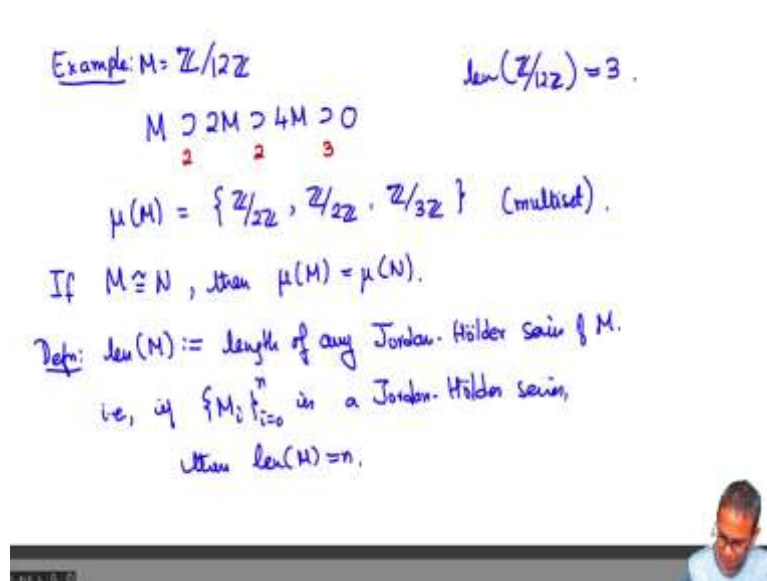 Example: M = ℤ/12ℤ
len(ℤ/12ℤ) = 3.
M ⊃ 2M ⊃ 4M ⊃ 0
2 2 3
μ(M) = { ℤ/2ℤ, ℤ/2ℤ, ℤ/3ℤ } (multiset).
If M ≅ N, then μ(M) = μ(N).
Defn: len(M) := length of any Jordan-Hölder series of M.
i.e., if {M_i}_{i=0}^n is a Jordan-Hölder series,
then len(M) = n.